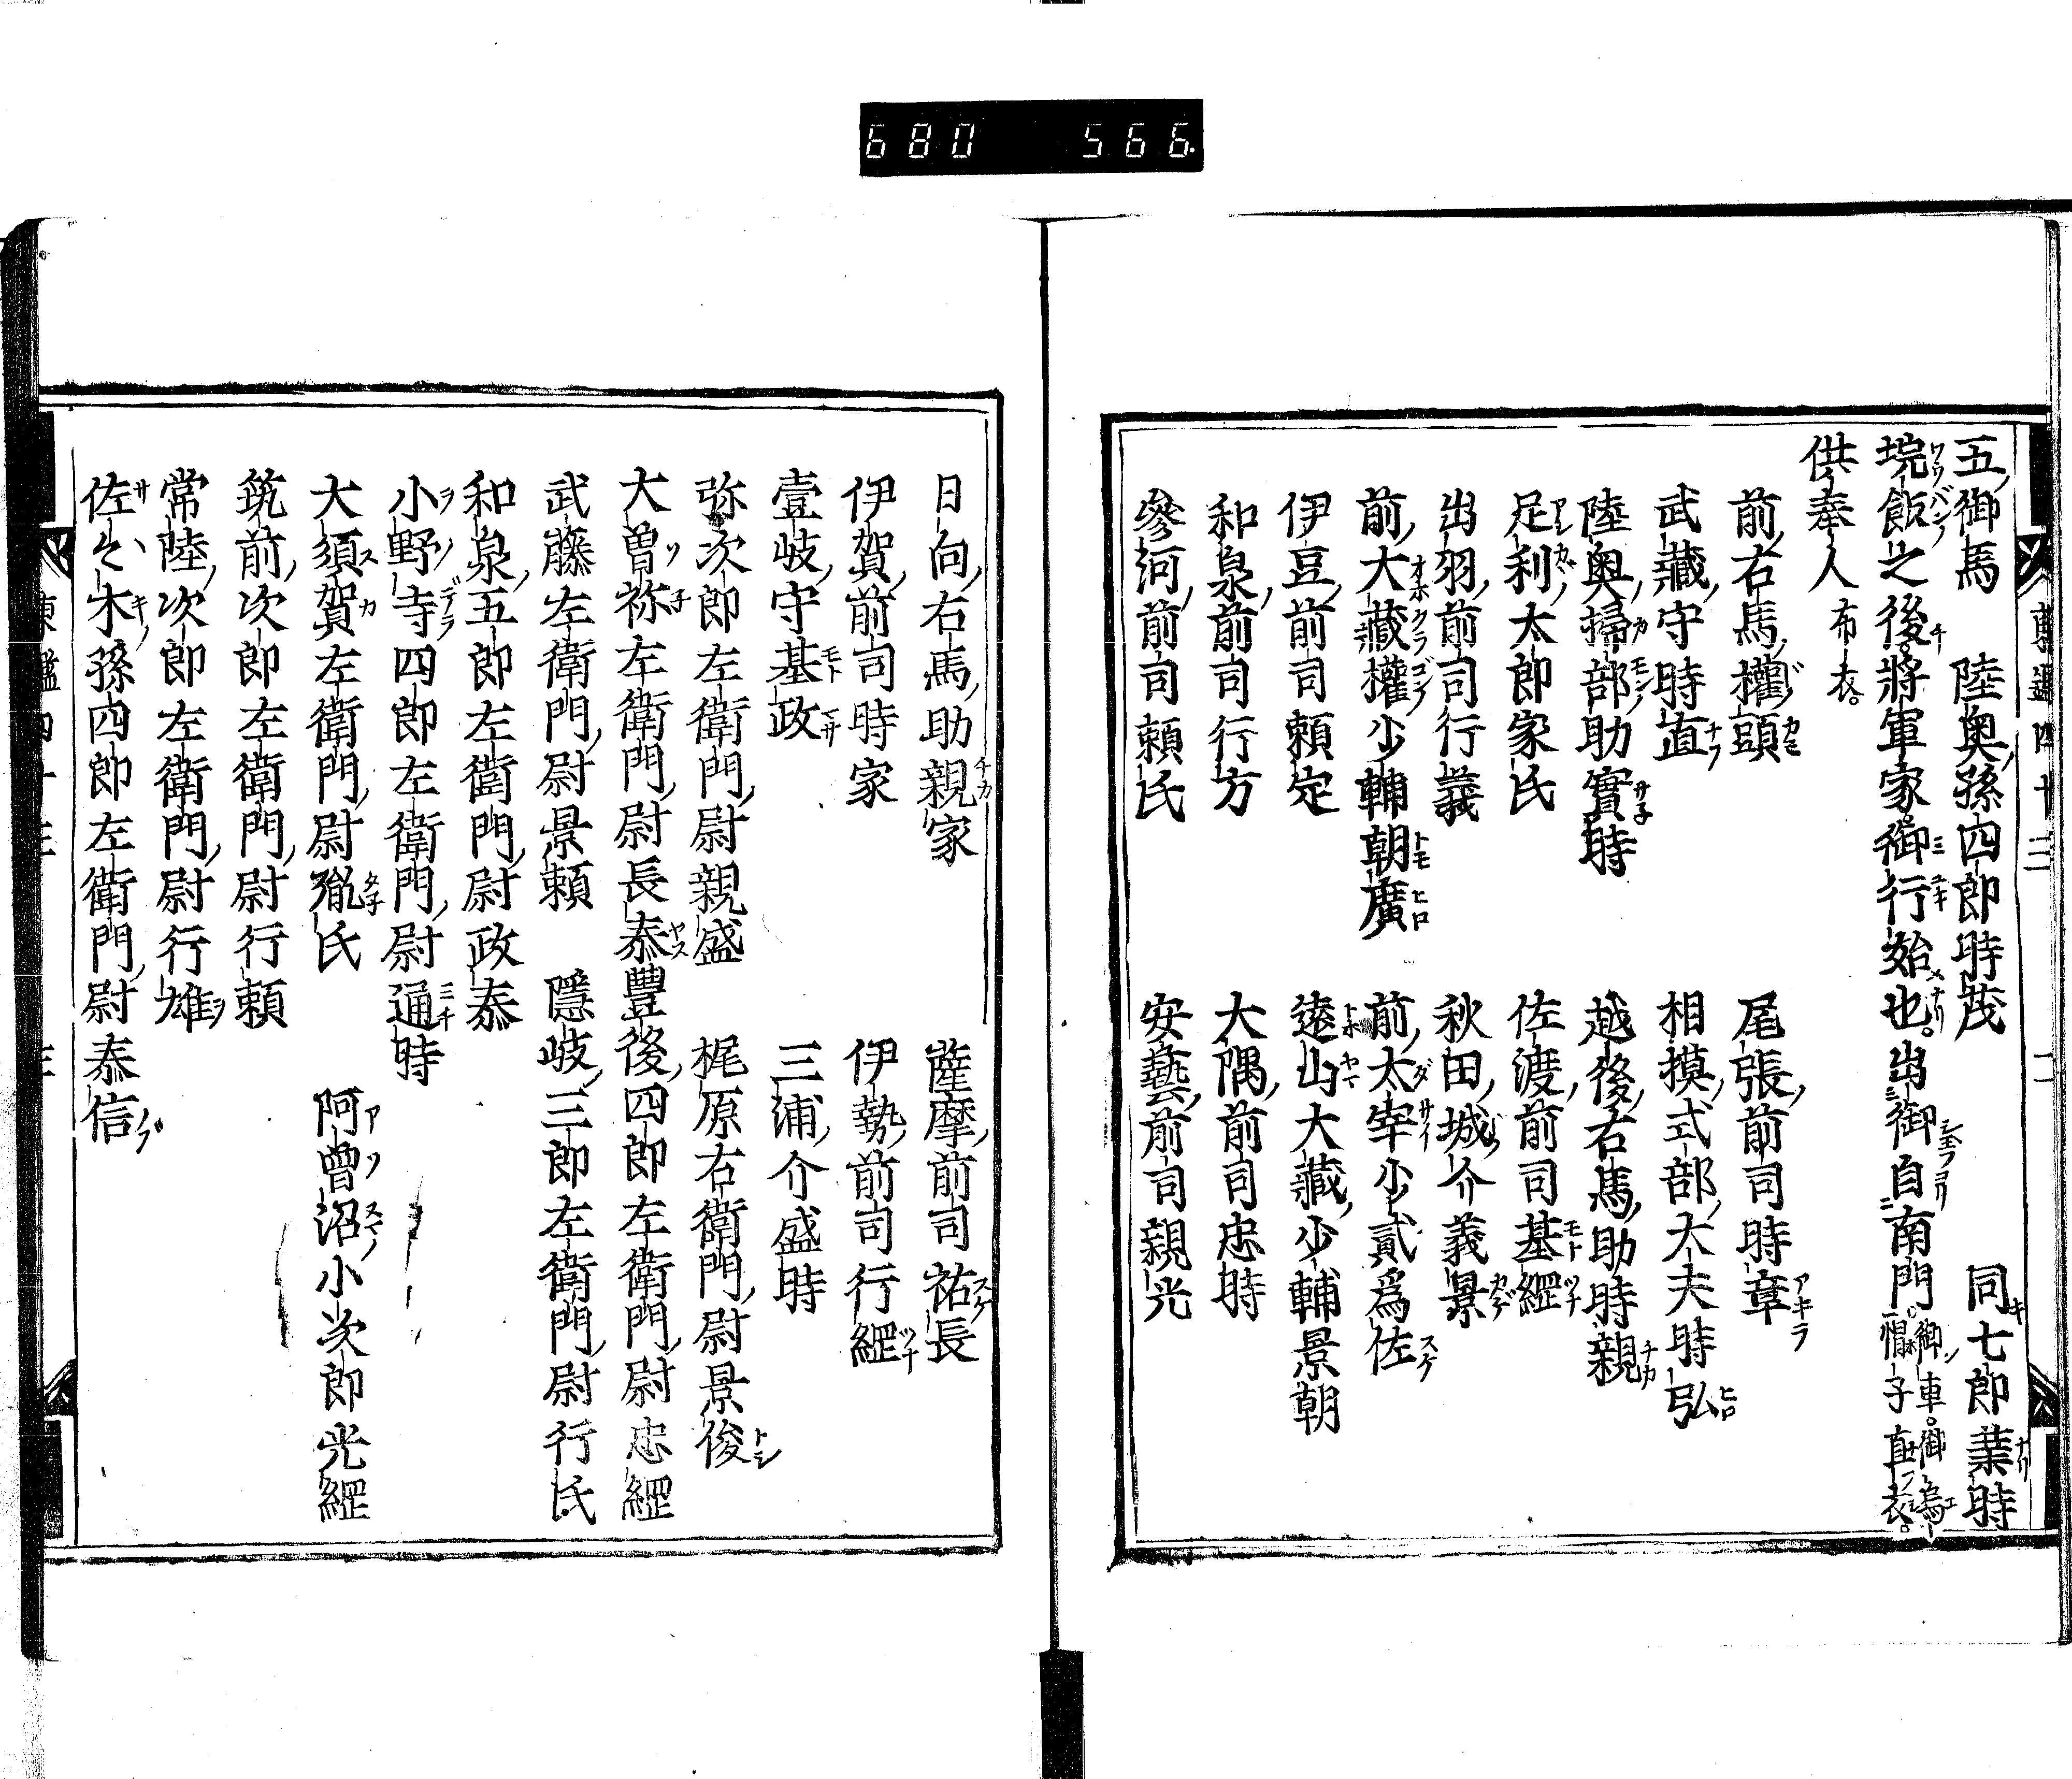 680 566.
五御馬 陸奥孫四郎時茂 同七郎業時
垸飯之後。將軍家。御行始也。出御自南門御車。御烏帽子直衣。
供奉人布衣。
前右馬權頭 尾張前司時章
武藏守時直 相摸式部大夫時弘
陸奥掃部助實時 越後右馬助時親
足利太郎家氏 佐渡前司基綱
出羽前司行義 秋田城介義景
前大藏權少輔朝廣 前太宰少貳爲佐
伊豆前司頼定 遠山大藏少輔景朝
和泉前司行方 大隅前司忠時
參河前司頼氏 安藝前司親光
日向右馬助親家 薩摩前司祐長
伊賀前司時家 伊勢前司行綱
壹岐守基政 三浦介盛時
弥次郎左衛門尉親盛 梶原右衛門尉景俊
大曽祢左衛門尉長泰 豊後四郎左衛門尉忠綱
武藤左衛門尉景頼 隱岐三郎左衛門尉行氏
和泉五郎左衛門尉政泰
小野寺四郎左衛門尉通時
大須賀左衛門尉胤氏 阿曽沼小次郎光綱
筑前次郎左衛門尉行頼
常陸次郎左衛門尉行雄
佐々木孫四郎左衛門尉泰信